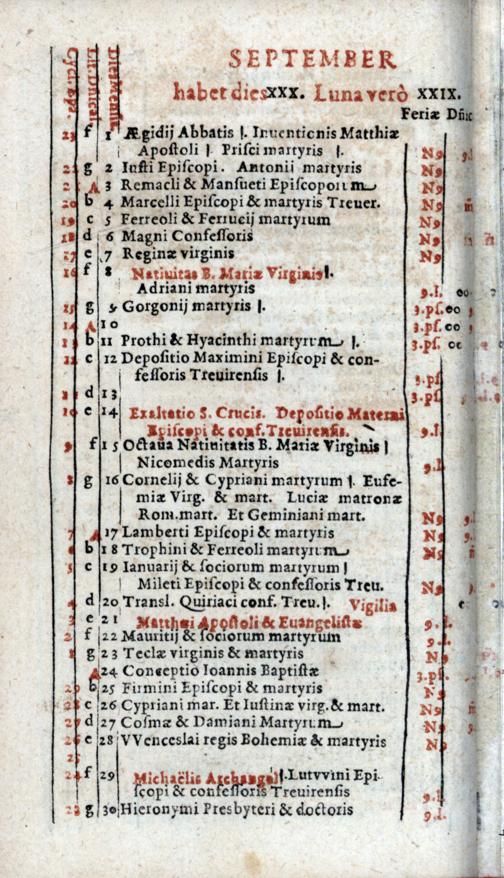 SEPTEMBER
habet dies XXX. Luna verò XXIX.
Cycl. Epa. Lit. Dnical. Dies Mensis. Feriæ Dñic
23 f 1 Ægidij Abbatis |. Inuentionis Matthiæ
Apostoli |. Prisci martyris |. N9
22 g 2 Iusti Episcopi. Antonii martyris N9
A 3 Remacli & Mansueti Episcoporum N9
20 b 4 Marcelli Episcopi & martyris Treuer. N9
19 c 5 Ferreoli & Ferrucij martyrum N9
18 d 6 Magni Confessoris N9
17 e 7 Reginæ virginis N9
16 f 8 Natiuitas B. Mariæ Virginis |.
Adriani martyris 9.l.
15 g 9 Gorgonij martyris |. 3.ps.
14 A 10 3.ps.
b 11 Prothi & Hyacinthi martyrum |. 3.ps.
12 c 12 Depositio Maximini Episcopi & con-
fessoris Treuirensis |. 3.ps
11 d 13 3.ps.
10 e 14 Exaltatio S. Crucis. Depositio Materni
Episcopi & conf. Treuirensis. 9.l.
9 f 15 Octaua Natiuitatis B. Mariæ Virginis |
Nicomedis Martyris 9.l.
8 g 16 Cornelij & Cypriani martyrum |. Eufe-
miæ Virg. & mart. Luciæ matronæ
Rom.mart. Et Geminiani mart. N9
7 A 17 Lamberti Episcopi & martyris N9
6 b 18 Trophini & Ferreoli martyrum N9
5 c 19 Ianuarij & sociorum martyrum |
Mileti Episcopi & confessoris Treu. N9
4 d 20 Transl. Quiriaci conf. Treu. |. Vigilia
3 e 21 Matthæi Apostoli & Euangelistæ 9.l.
2 f 22 Mauritij & sociorum martyrum 9.l.
1 g 23 Teclæ virginis & martyris N9
A 24 Conceptio Ioannis Baptistæ 3.ps.
29 b 25 Firmini Episcopi & martyris N9
28 c 26 Cypriani mar. Et Iustinæ virg. & mart. N9
27 d 27 Cosmæ & Damiani Martyrum N9
26 e 28 VVenceslai regis Bohemiæ & martyris N9
25
24 f 29 Michaëlis Archangeli |. Lutvvini Epi-
scopi & confessoris Treuirensis 9.l.
23 g 30 Hieronymi Presbyteri & doctoris 9.l.